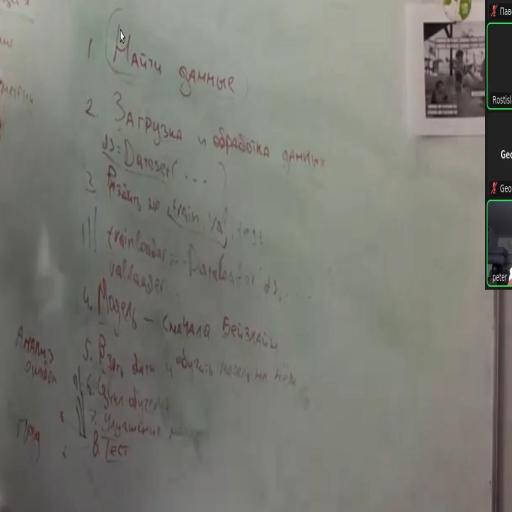 1. Найти данные
2. Загрузка и обработка данных
ds = Dataset( ... )
3. Разбить на train, val, test
trainloader = DataLoader(ds, ...
valloader
4. Модель – сначала Бейзлайн
5. Взять батч и обучать модель на нём
6. Цикл обучения
7. Улучшение
8. Тест
Анализ
ошибок
Прод
Rostisl
Geo
Geo
peter